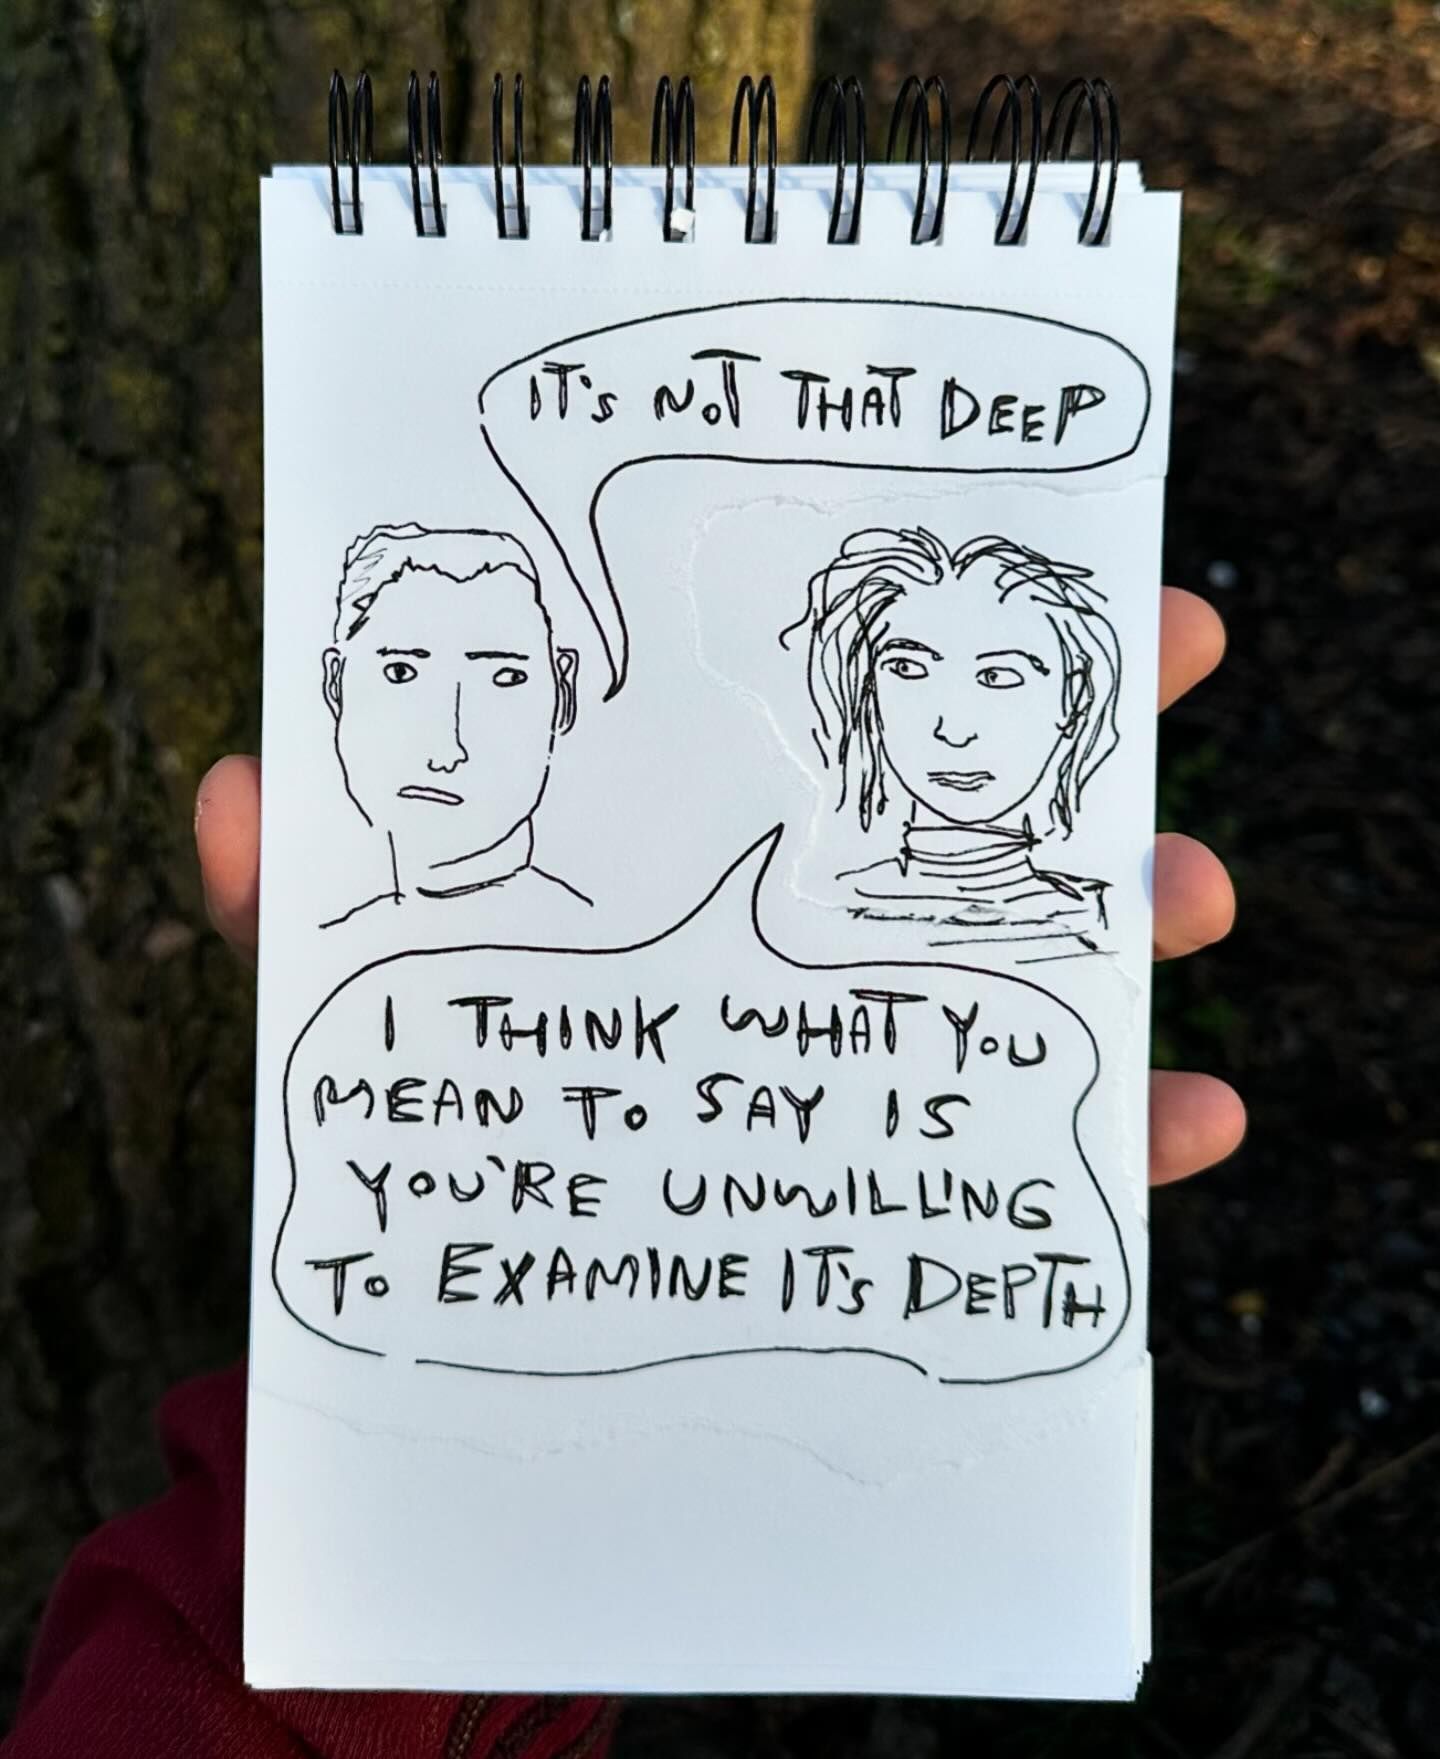 IT's NOT THAT DEEP
I THINK WHAT YOU
MEAN TO SAY IS
YOU'RE UNWILLING
TO EXAMINE IT's DEPTH